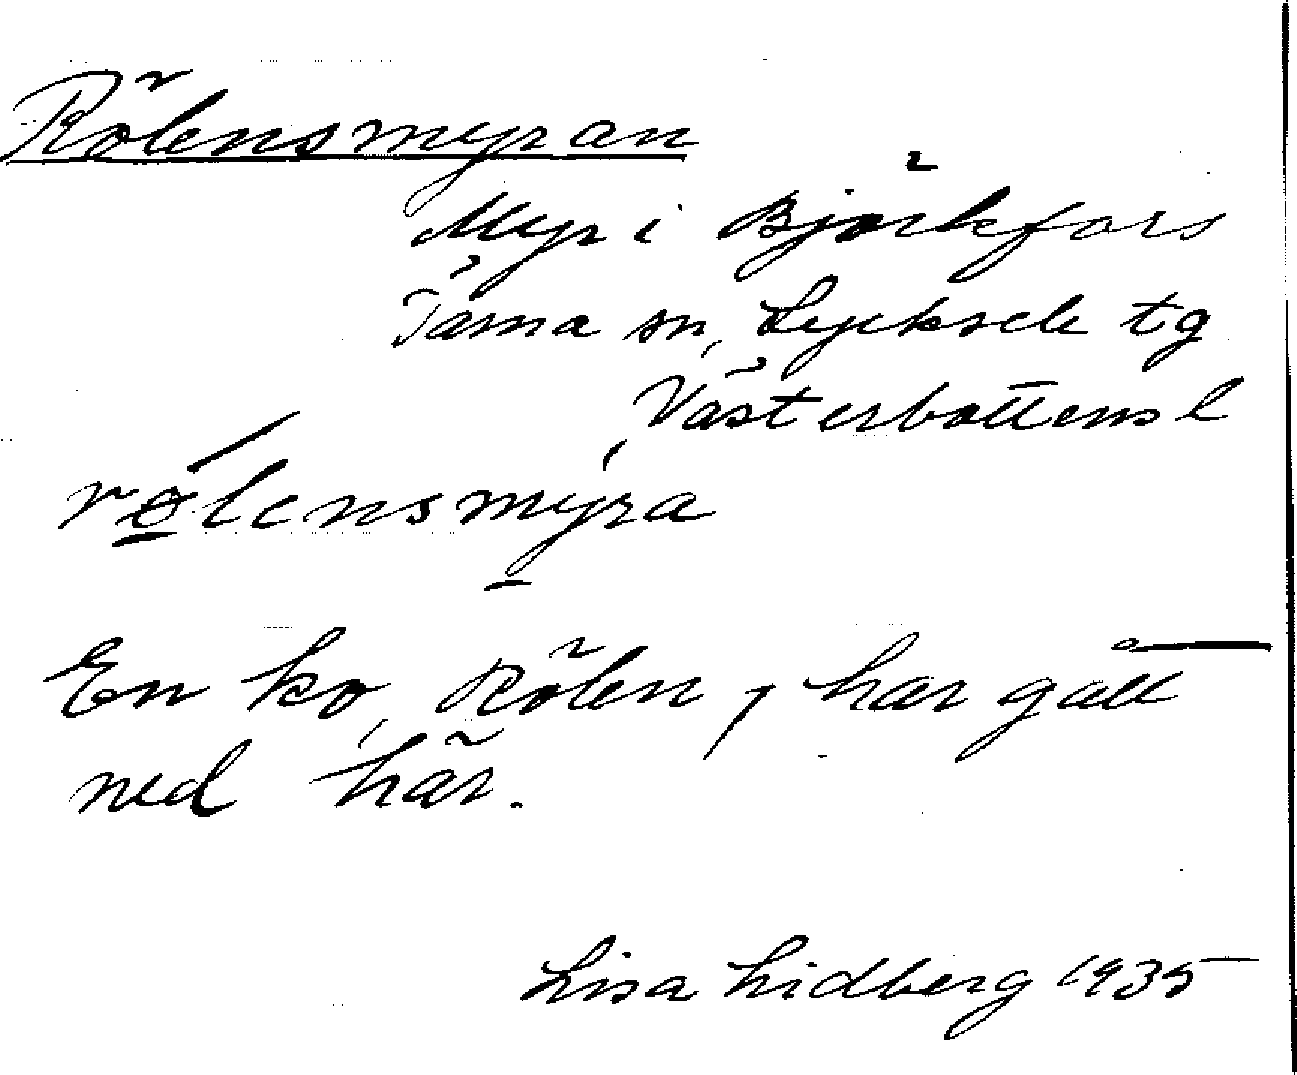 Rölensmyran
Myr i Björkfors
Tärna sn, Lycksele tg
Västerbottens l
rølensmyra
En ko, Rölen, har gått
ned här.
Lisa Lidberg 1935